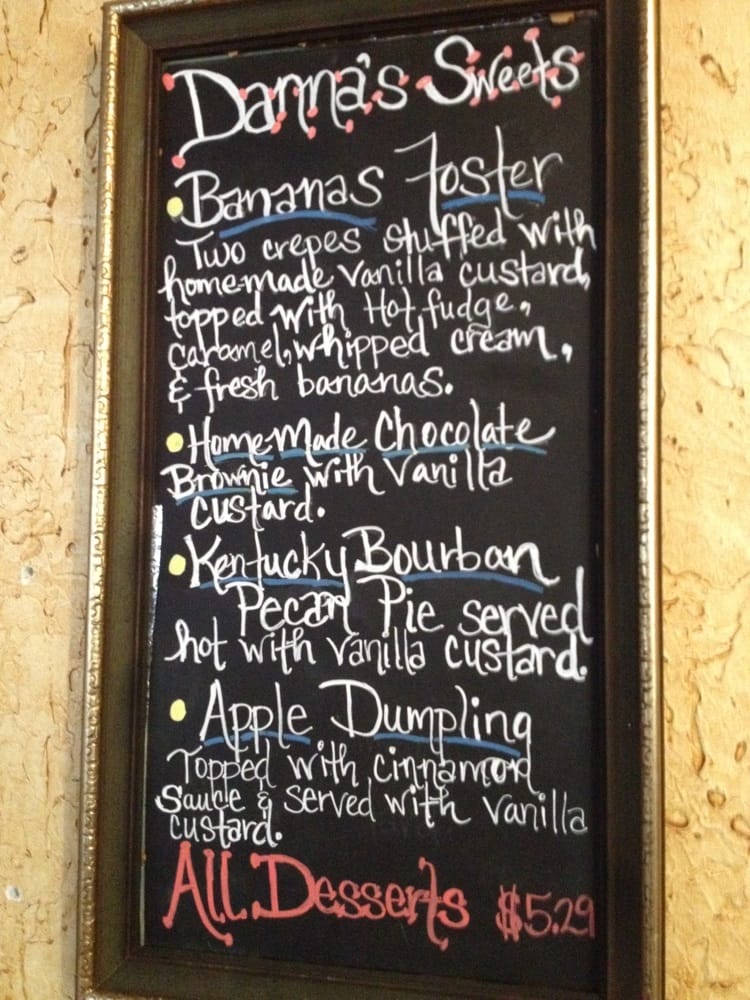 Danna's Sweets
Bananas Foster
Two crepes stuffed with
homemade vanilla custard,
topped with Hot fudge,
caramel, whipped cream,
& fresh bananas.
HomeMade Chocolate
Brownie with Vanilla
custard.
Kentucky Bourban
Pecan Pie served
hot with vanilla custard.
Apple Dumpling
Topped with cinnamon
Sauce & Served with vanilla
custard.
All Desserts $5.29